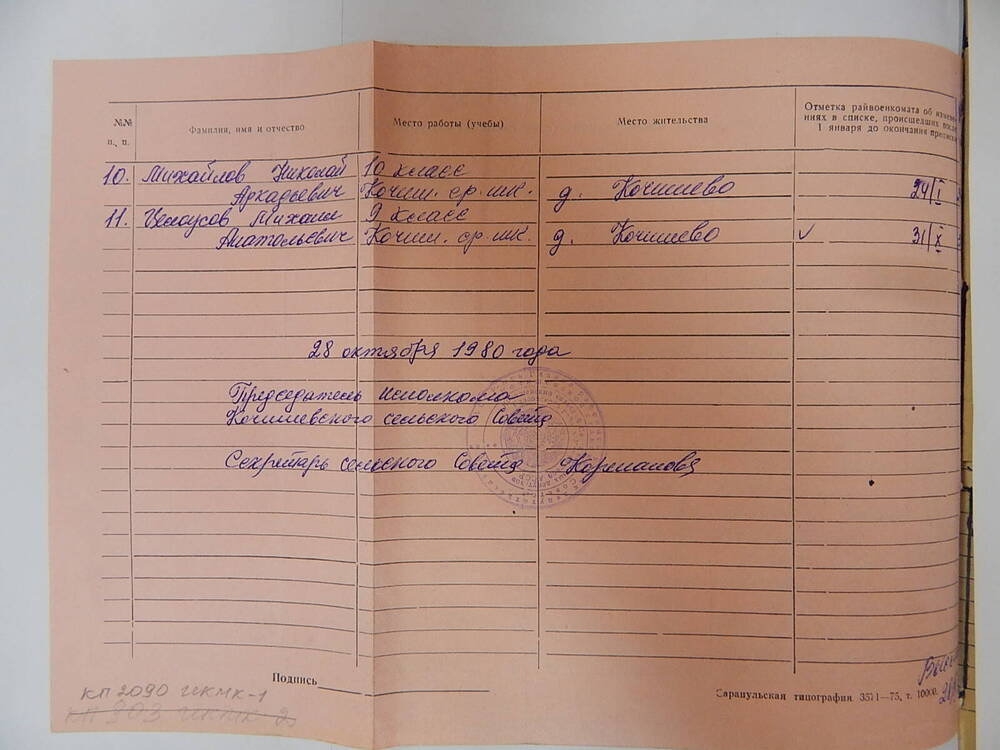 №№ п. п.
Фамилия, имя и отчество
Место работы (учебы)
Место жительства
Отметка райвоенкомата об
ниях в списке, происшедших
1 января до окончания
10. Михайлов Николай 10 класс
Аркадьевич Кочиш. ср. шк. д. Кочишево 24/I
11. Белоусов Михаил 9 класс
Анатольевич Кочиш. ср. шк. д. Кочишево ✓ 31/X
28 октября 1980 года
Председатель исполкома
Кочишевского сельского Совета
Секретарь сельского Совета Корепанова
Подпись
Сарапульская типография 3571—75, т. 10000.
КП 2090 ИКМК-1
КП 303 ИКМК 2